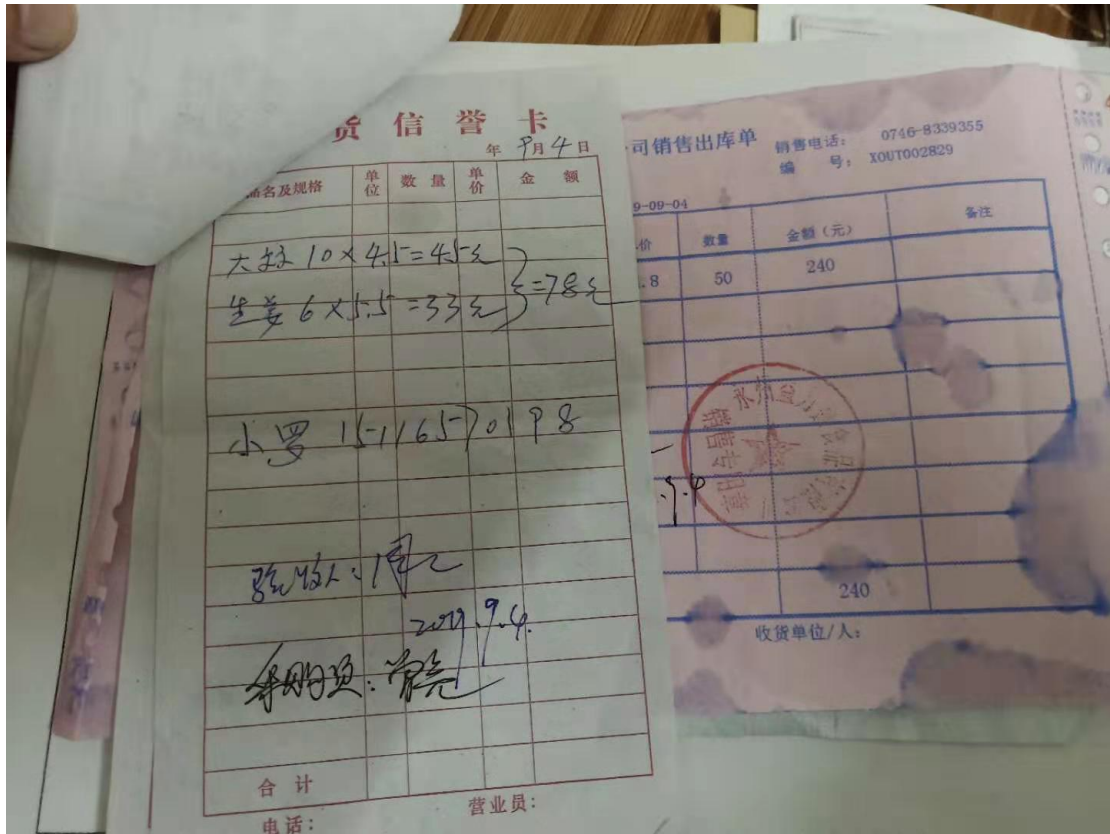 货信誉卡
年 9月4日
品名及规格 单位 数量 单价 金额
大蒜 10×4.5=45元
生姜 6×5.5=33元
}=78元
小罗 15116570198
验收人:周
2019.9.4.
采购员:
合计
电话:
营业员:
司销售出库单
销售电话: 0746-8339355
编号: XOUT002829
9-09-04
价 数量 金额(元) 备注
.8 50 240
.9.4
240
收货单位/人: